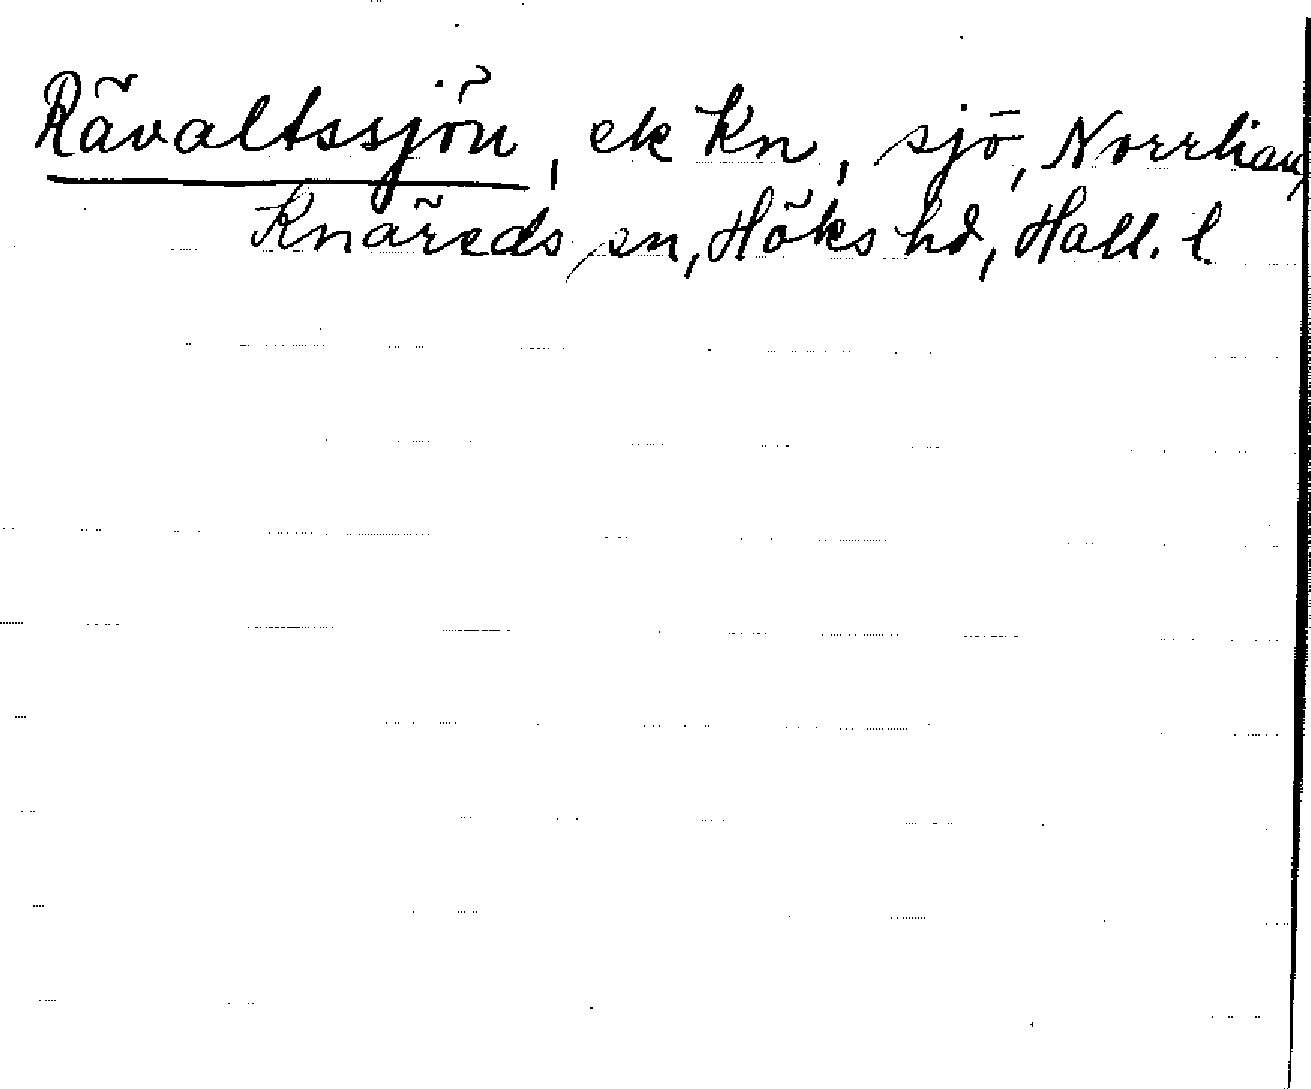 Rävaltssjön, ek Kn, sjö, Norrlian,
Knäreds sn, Höks hd, Hall. l.